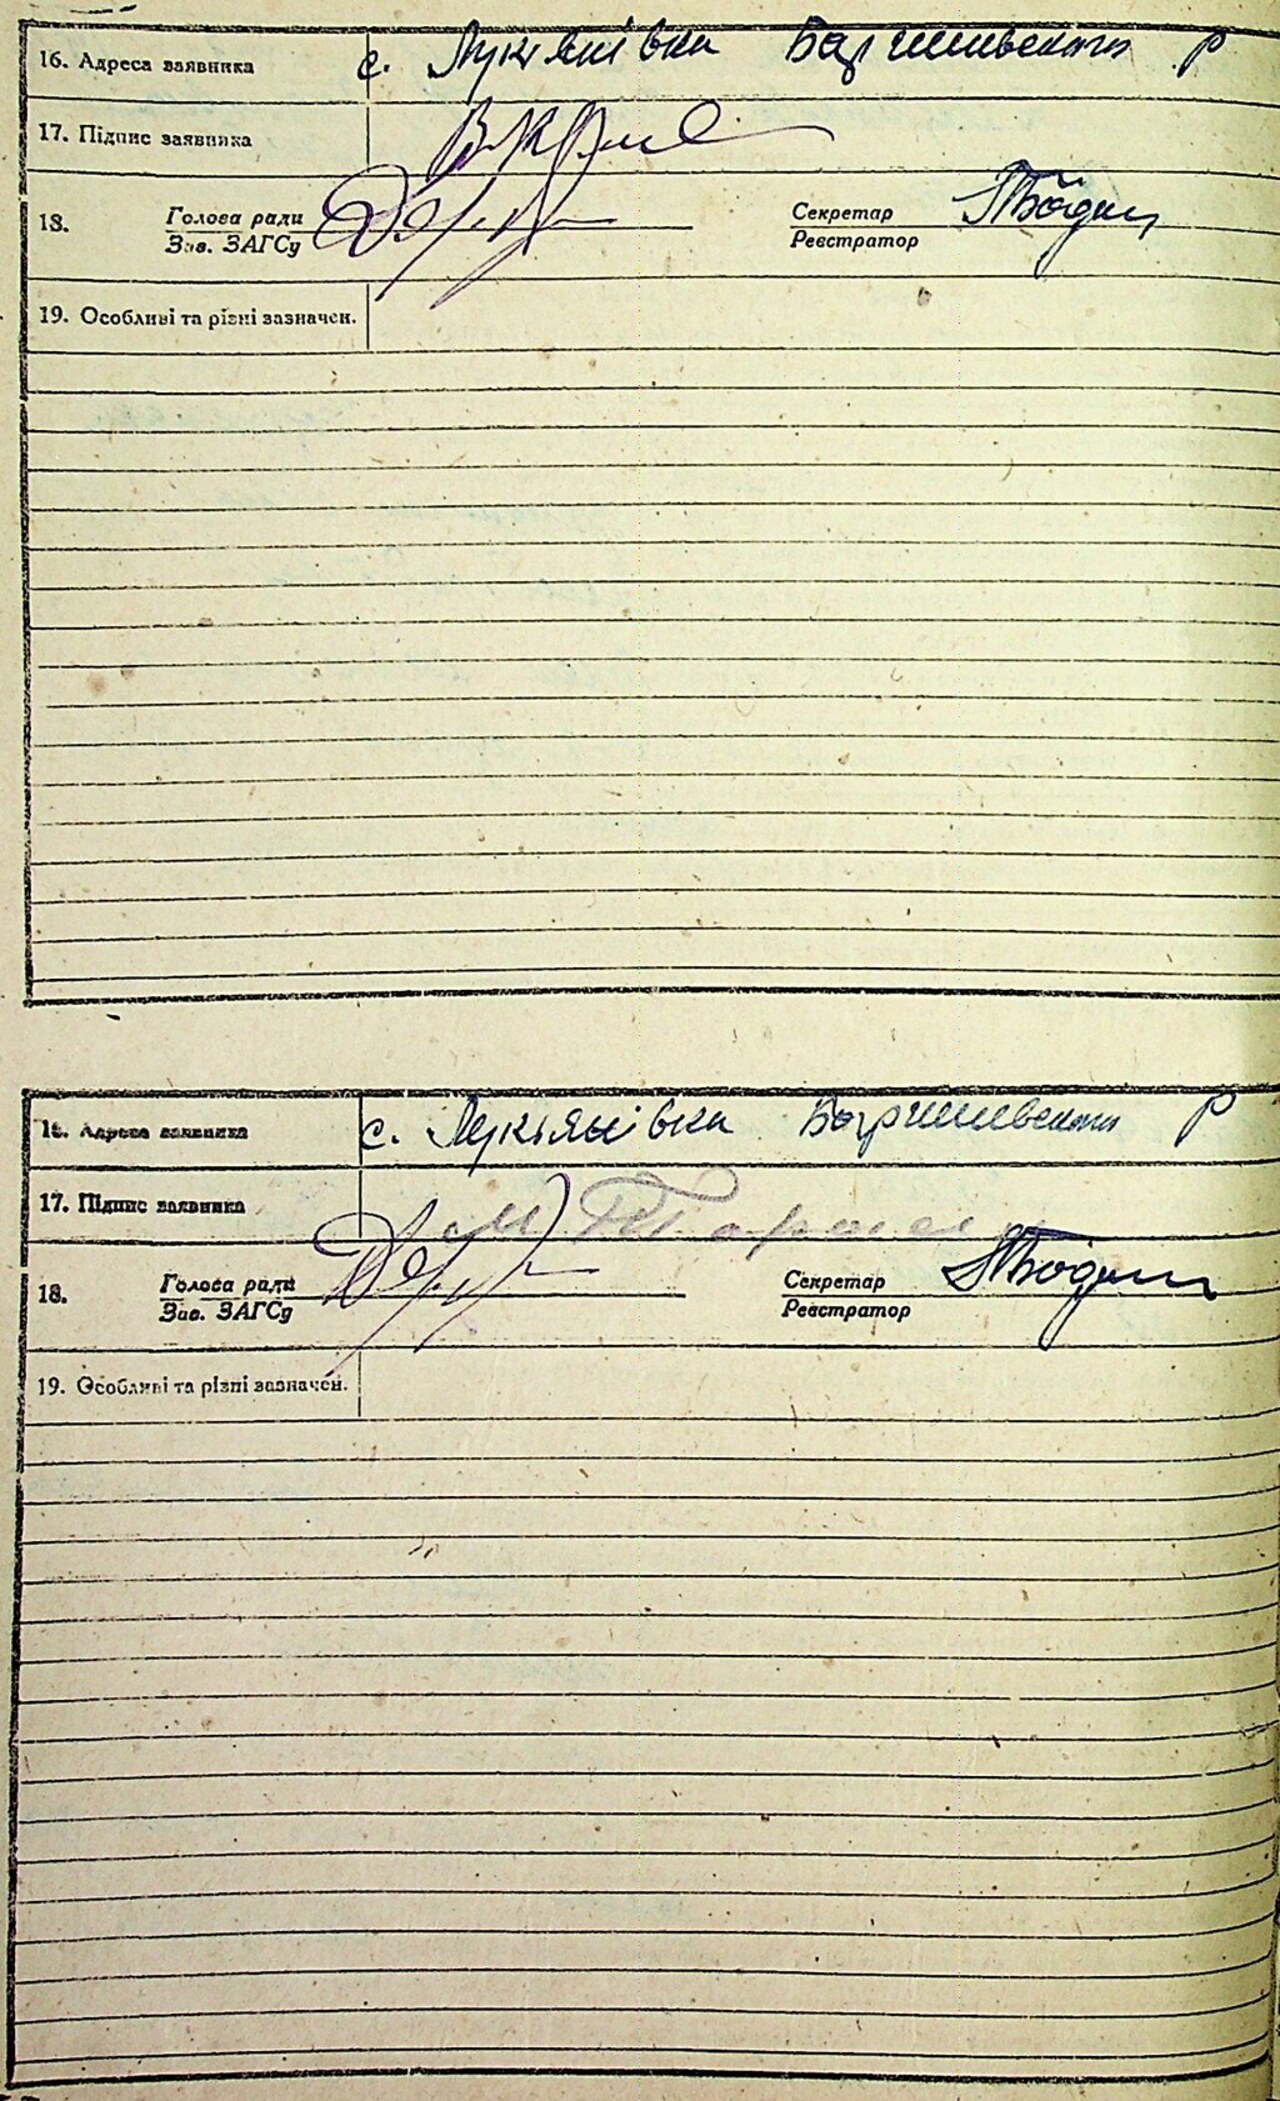 16. Адреса заявника с. Лукянівка Баришивського р
17. Підпис заявника
18. Голова ради Секретар
Зав. ЗАГСу Реєстратор
19. Особливі та різні зазначен.
16. Адреса заявника с. Лукьянівка Баришивського р
17. Підпис заявника
18. Голова ради Секретар
Зав. ЗАГСу Реєстратор
19. Особливі та різні зазначен.